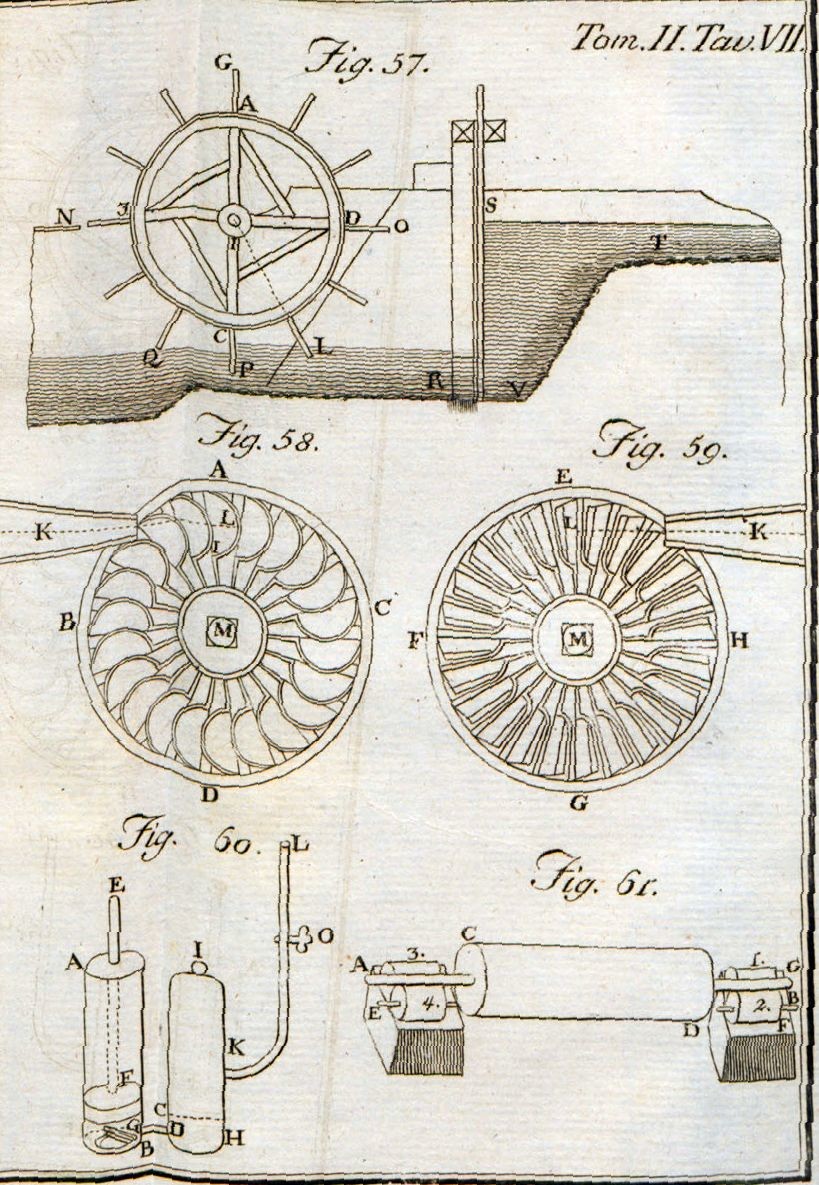 Tom. II. Tav. VII.
Fig. 57.
G
A
N
I
D
O
S
T
I
C
L
Q
P
R
V
Fig. 58.
Fig. 59.
A
E
K
L
L
K
I
B
M
C
F
M
H
D
G
Fig. 60.
Fig. 61.
L
E
O
C
A
I
A
3.
1.
G
E
4.
2.
B
F
D
F
K
C
G
D
B
H